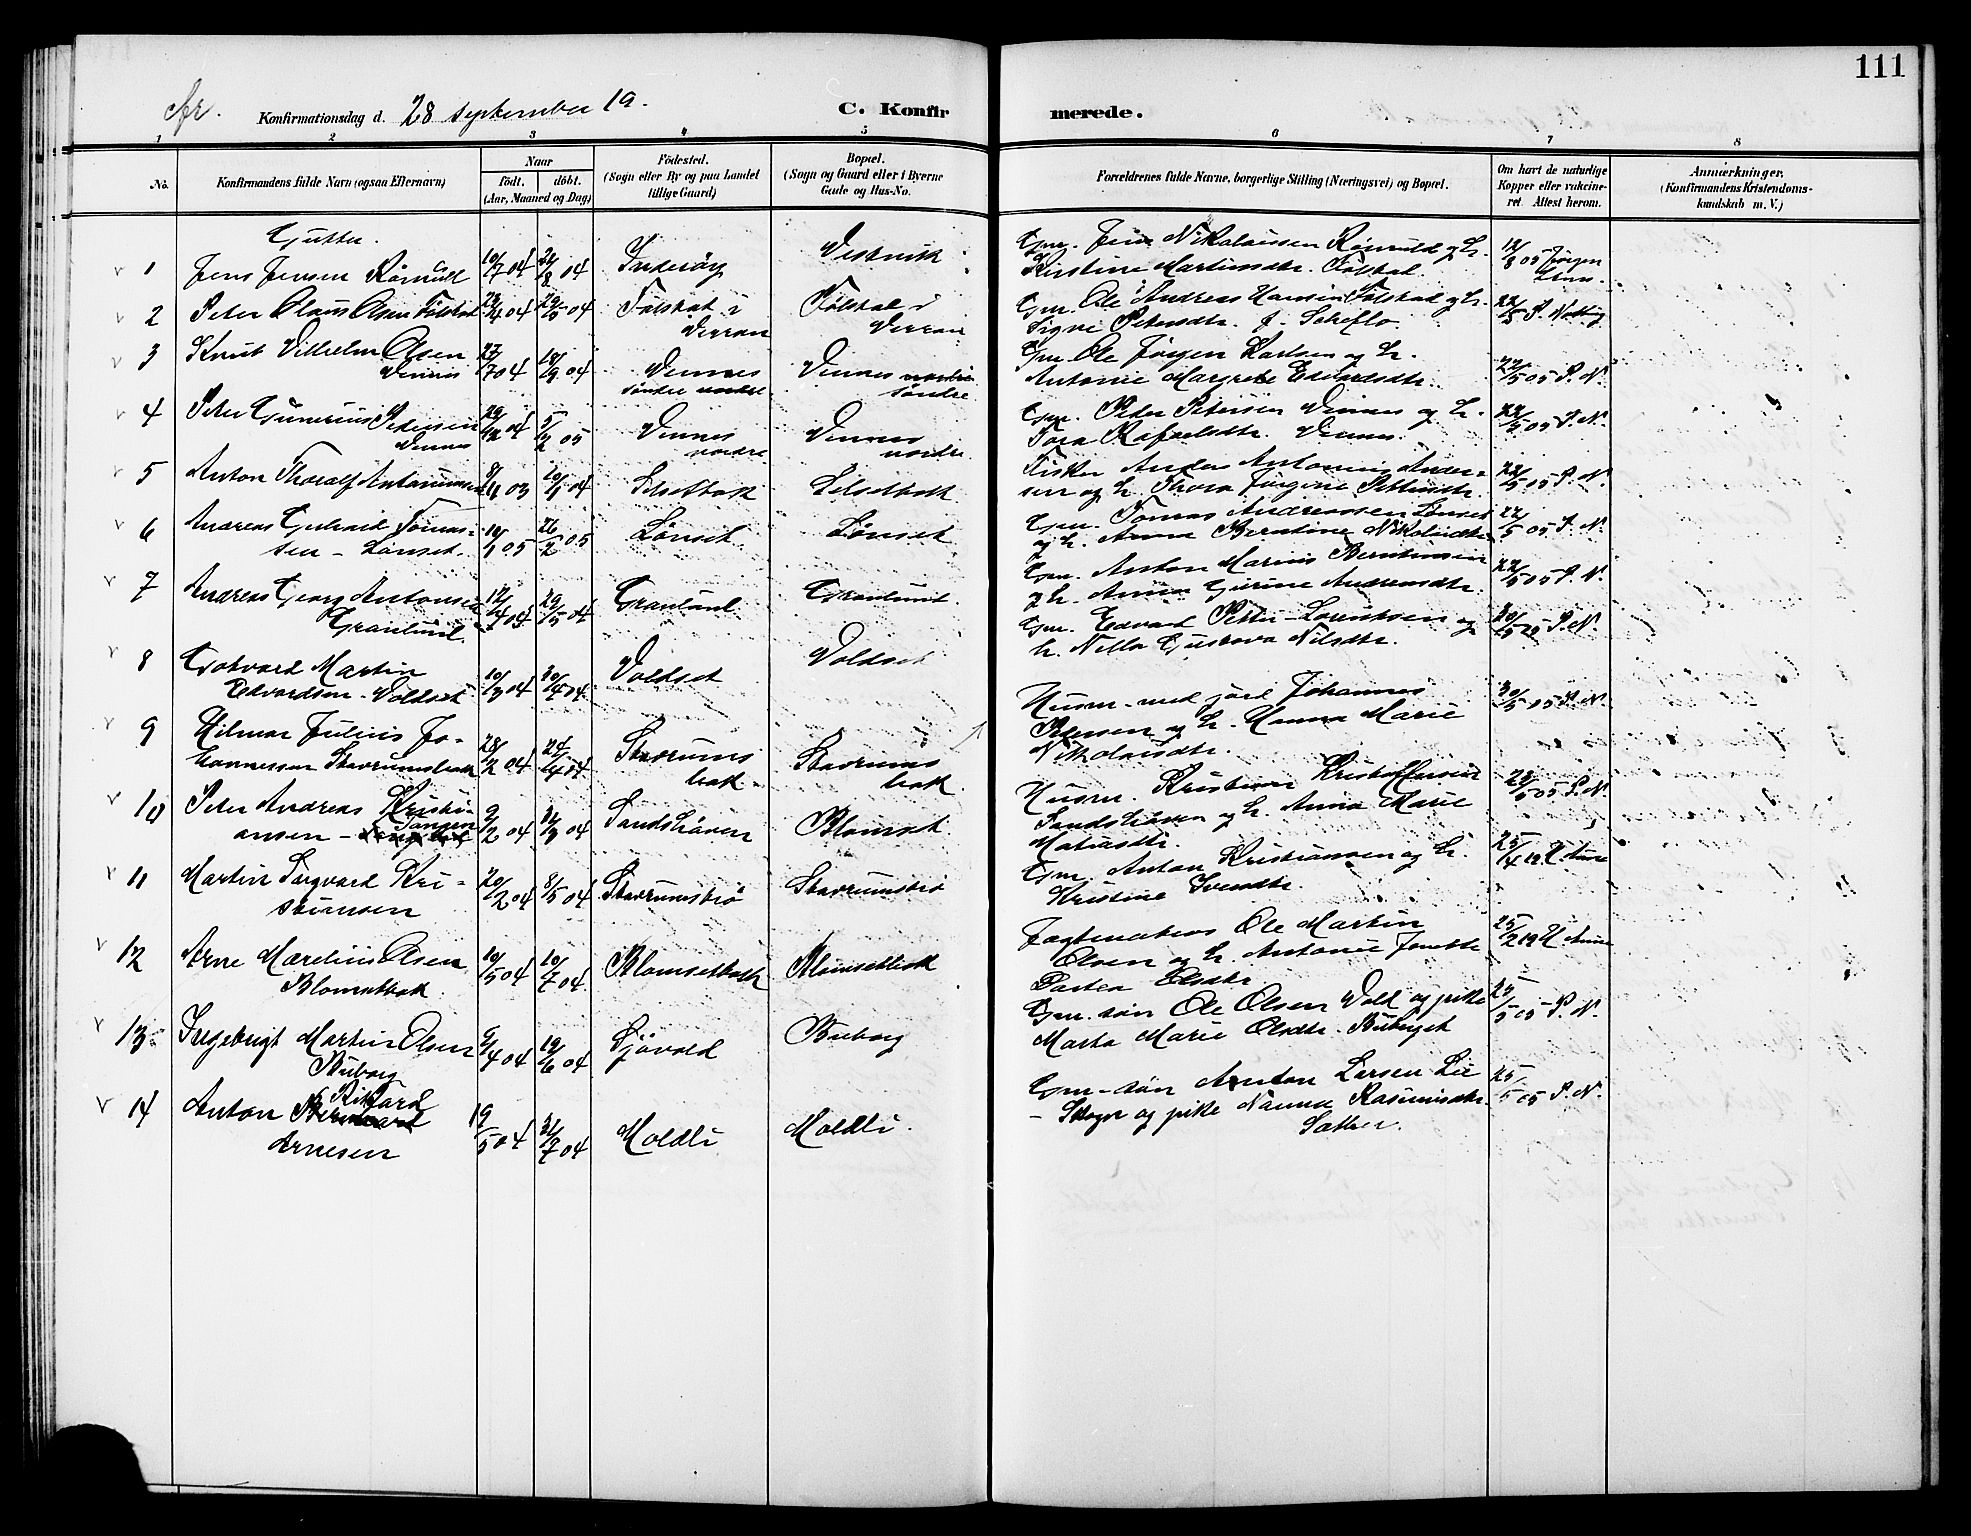 111
Konfirmationsdag d. 28 september 19.
C. Konfir
merede.
1 2 3 4 5 6 7 8
No.
Konfirmandens fulde Navn (ogsaa Efternavn)
Naar
født. døbt.
(Aar, Maaned og Dag)
Fødested.
(Sogn eller By og paa Landet
tillige Gaard)
Bopæl.
(Sogn og Gaard eller i Byerne
Gade og Hus-No.
Forældrenes fulde Navne, borgerlige Stilling (Næringsvei) og Bopæl.
Om havt de naturlige
Kopper eller vakcine-
ret. Attest herom.
Anmærkninger.
(Konfirmandens Kristendoms-
kundskab m. V.)
Gutter.
1 Jens Jensen 10/7 04 04 Inderøy Vestvik
Gm. Jens Nikolaisen og h.
Kirstine Martinsdtr. Følstad. 12/8 05 Jørgen
2 Peter Olaus Olsen Følstad 04 29/5 04 Følstad i
Verran
Følstad i
Verran
Gm. Ole Andreas Hansen Følstad og h.
Signe Petersdtr. f. Scheflo. 22/5 P.
3 Knut Vilhelm Olsen
Vennes
27/7 04 18/9 04 Vennes
søndre nordre.
Vennes nordre
søndre
Gm. Ole Jørgen Karlsen og h.
Antonie Margrete Edvardsdtr. 22/5 05 P. N.
4 Peter Gunerius Petersen
Vennes
29/12 04 5/2 05 Vennes
nordre
Vennes
nordre.
Gm. Peter Petersen Vennes og h.
Tora Rafaelsdtr. Vennes. 22/5 05 P. N.
5 Anton Thoralf Antoniussen 8/11 03 10/1 04 Selsetbak Selsetbak
Fisker Anders Antonius Ander-
sen og h. Thora Jørgine Pettersdtr. 22/5 05 P. N.
6 Andreas Gerhard Tomas-
sen - Lønset.
10/1 05 26/2 05 Lønset Lønset
Gm. Tomas Andreassen Lønset
og h. Anna Berntine Nikolaidtr. 22/5 05 P. N.
7 Andreas Georg Antonsen
Granlund.
29/5 04 Granlund Granlund.
Gm. Anton Marius Berntsen
og h. Anna Gurine Andreasdtr. 22/5 05 P. N.
8 Gotvard Martin
Edvardsen - Voldset
10/3 04 30/4 04 Voldset Voldset
Gm. Edvard Petter Lorentsen og
h. Nella Gustava Nilsdtr. P. N.
9 Hilmar Julius Jo-
hannessen Stavrumsbak
28/2 04 24/4 04 Stavrums
bak.
Stavrums
bak.
Husm. med jord Johannes
Petersen og h. Hanna Marie
Nikolaisdtr. 30/5 05 P. N.
10 Peter Andreas Kristi-
ansen - Tangen
9/2 04 31/3 04 Sandshaven Blomset
Husm. Kristian Kristoffersen
Sandshaven og h. Anna Marie
Matiasdtr. 05 P. N.
11 Martin Sigvard Kri-
stiansen
20/2 04 8/5 04 Stavrumsbrø Stavrumsbrø
Gm. Anton Kristiansen og h.
Kristine Svendtr. 25/4 19
12 Arne Marelius Olsen
Blomsetbak.
10/5 04 10/7 04 Blomsetbak Blomsetbak
Ole Martin
Olsen og h. Antonie Jonette
Olsdtr. 25/2 19
13 Ingebrigt Martin Olsen
Buborg
9/4 04 19/6 04 Sjøvold Buborg
Gm. søn Ole Olsen Vold og pike
Marta Marie Olsdtr. 25/5 05 P. N.
14 Anton Rikard
Arnesen
19/5 04 31/7 04 Moldli Moldli.
Gm. søn Anton Larsen Lie
- Skogn og pike Nanna Rasmusdtr.
Sæther. 25/5 05 P. N.